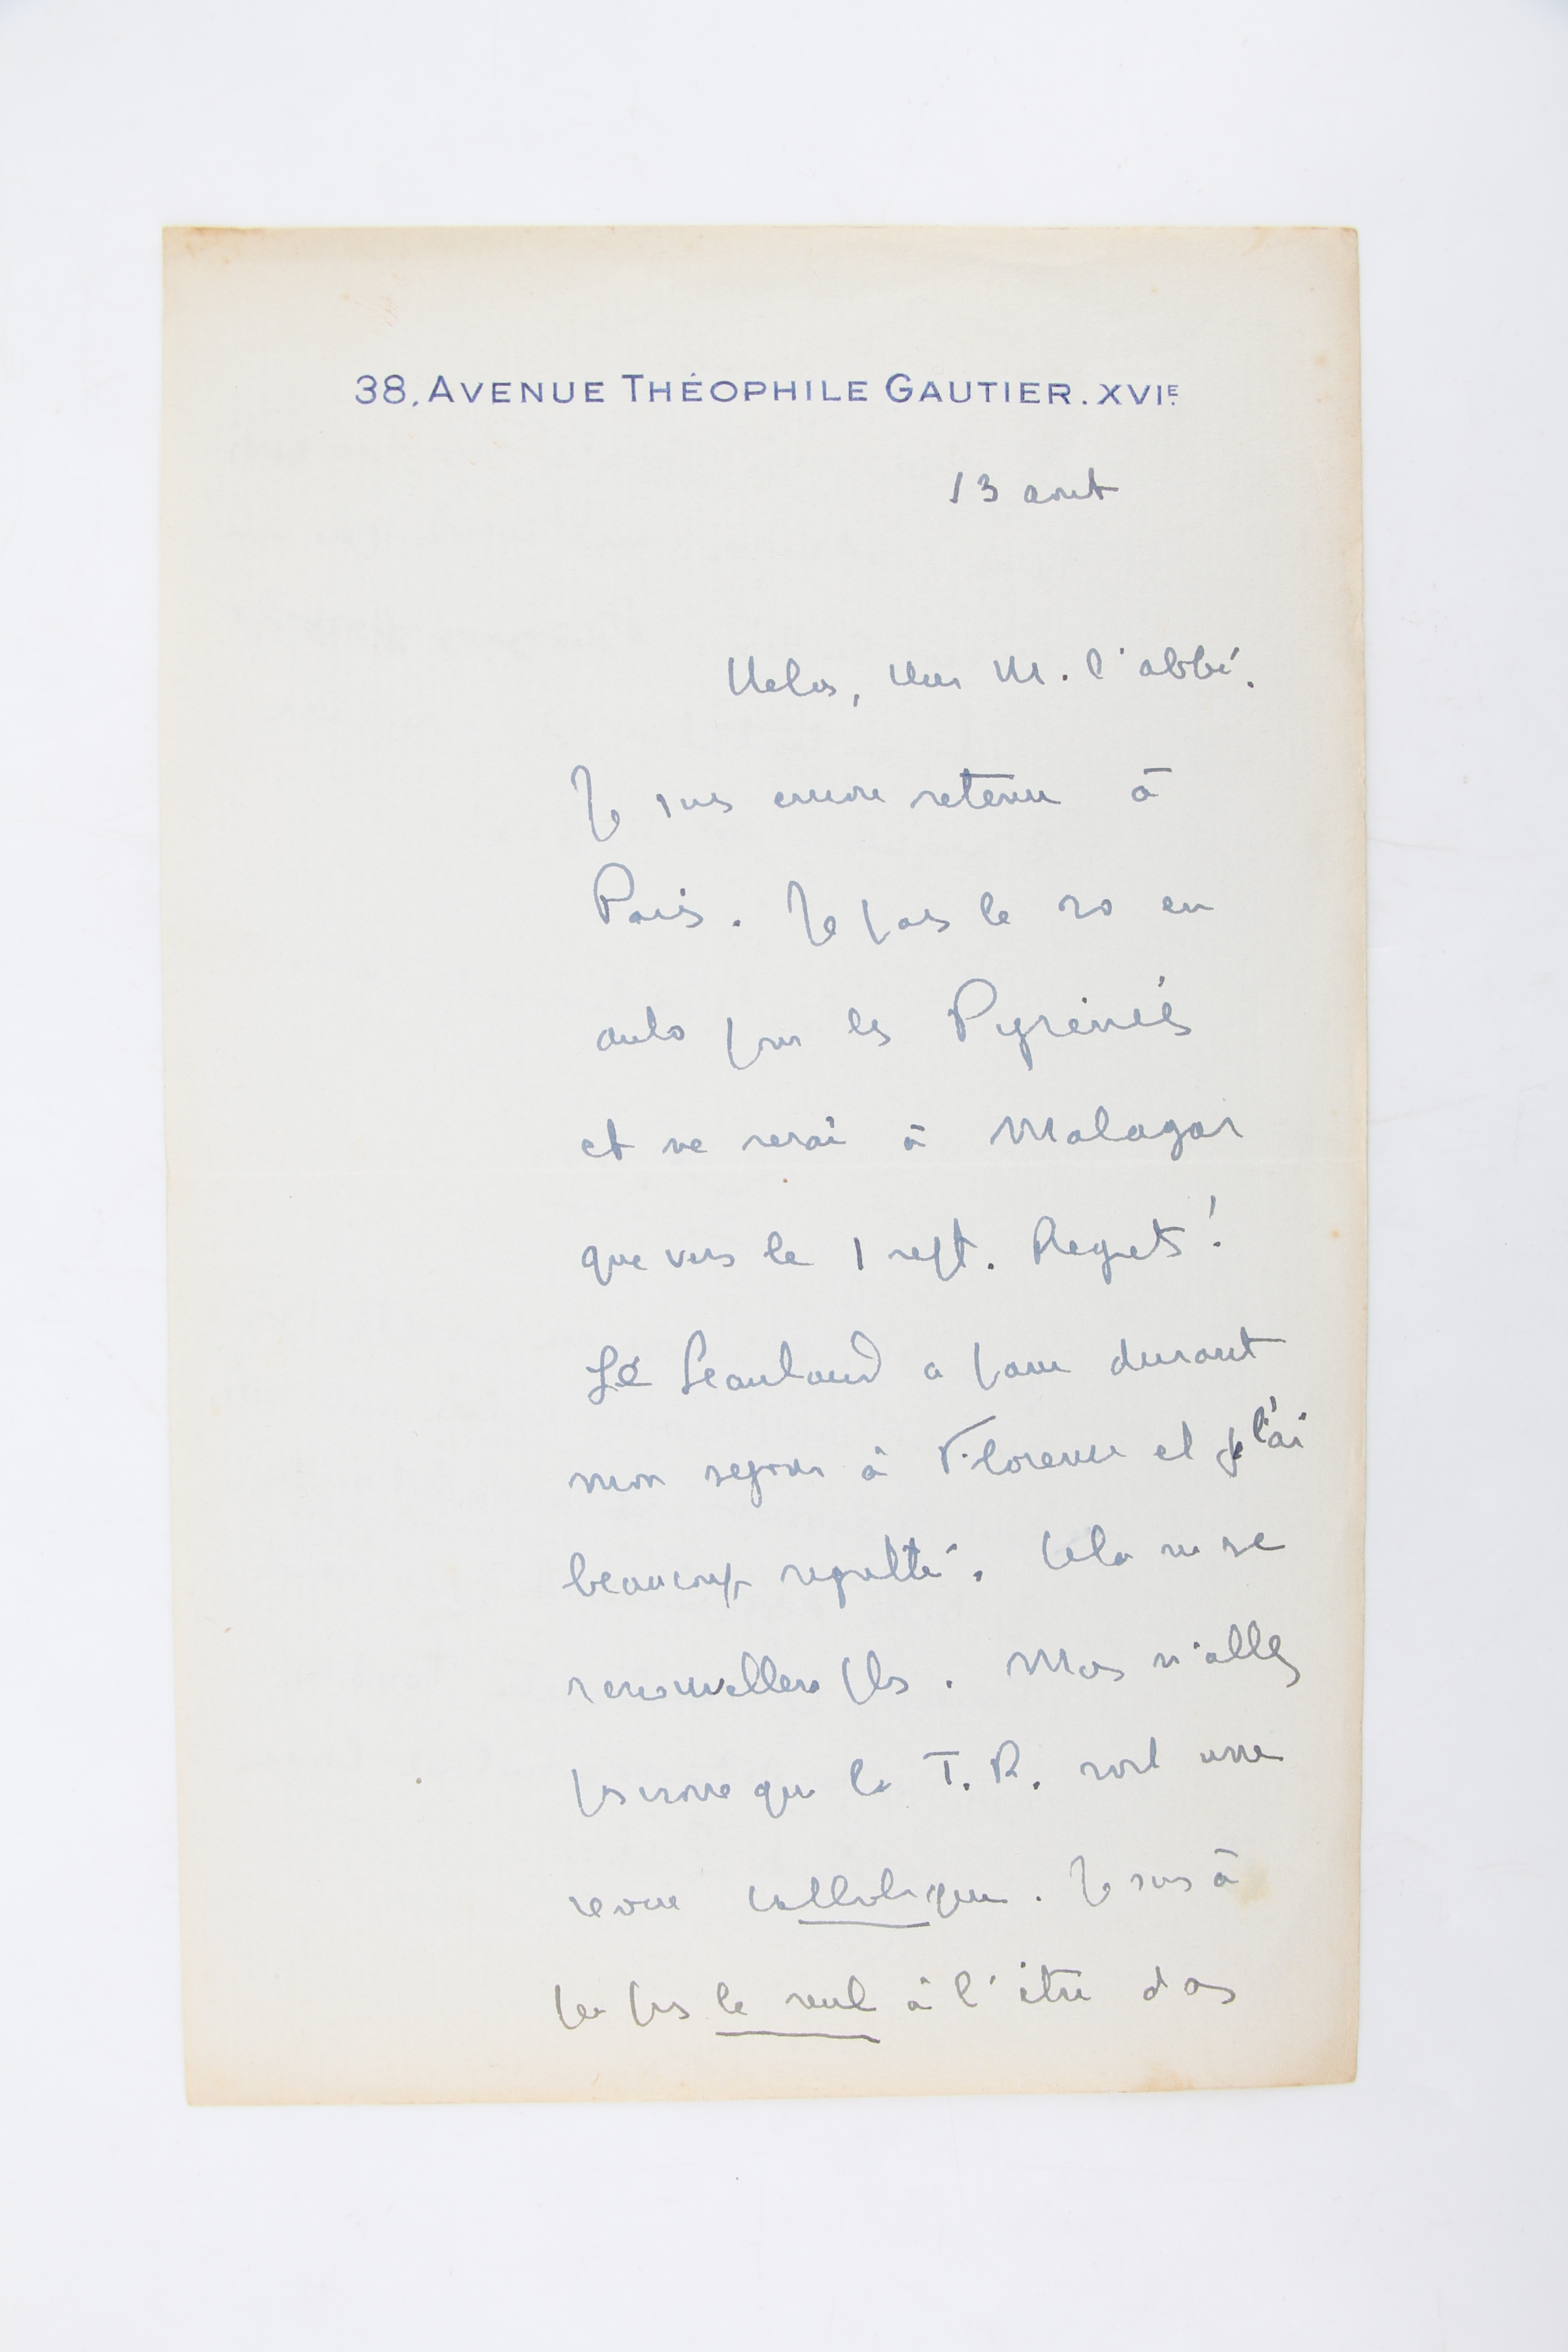 38, AVENUE THÉOPHILE GAUTIER. XVIE.
13 aout
Helas, cher M. l'abbé.
Je suis encore retenu à
Paris. Je pars le 20 en
auto pour les Pyrénées
et ne serai à Malagar
que vers le 1 sept. Regrets!
Le Léautaud a paru durant
mon sejour à Florence et je l'ai
beaucoup regretté. Cela ne se
renouvellera pas. Mais n'allez
pas croire que la T. R. soit une
revue catholique. Je suis à
peu près le seul à l'être dans